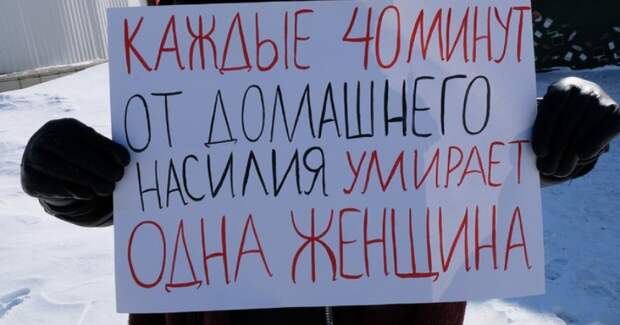 КАЖДЫЕ 40 МИНУТ
ОТ ДОМАШНЕГО
НАСИЛИЯ УМИРАЕТ
ОДНА ЖЕНЩИНА